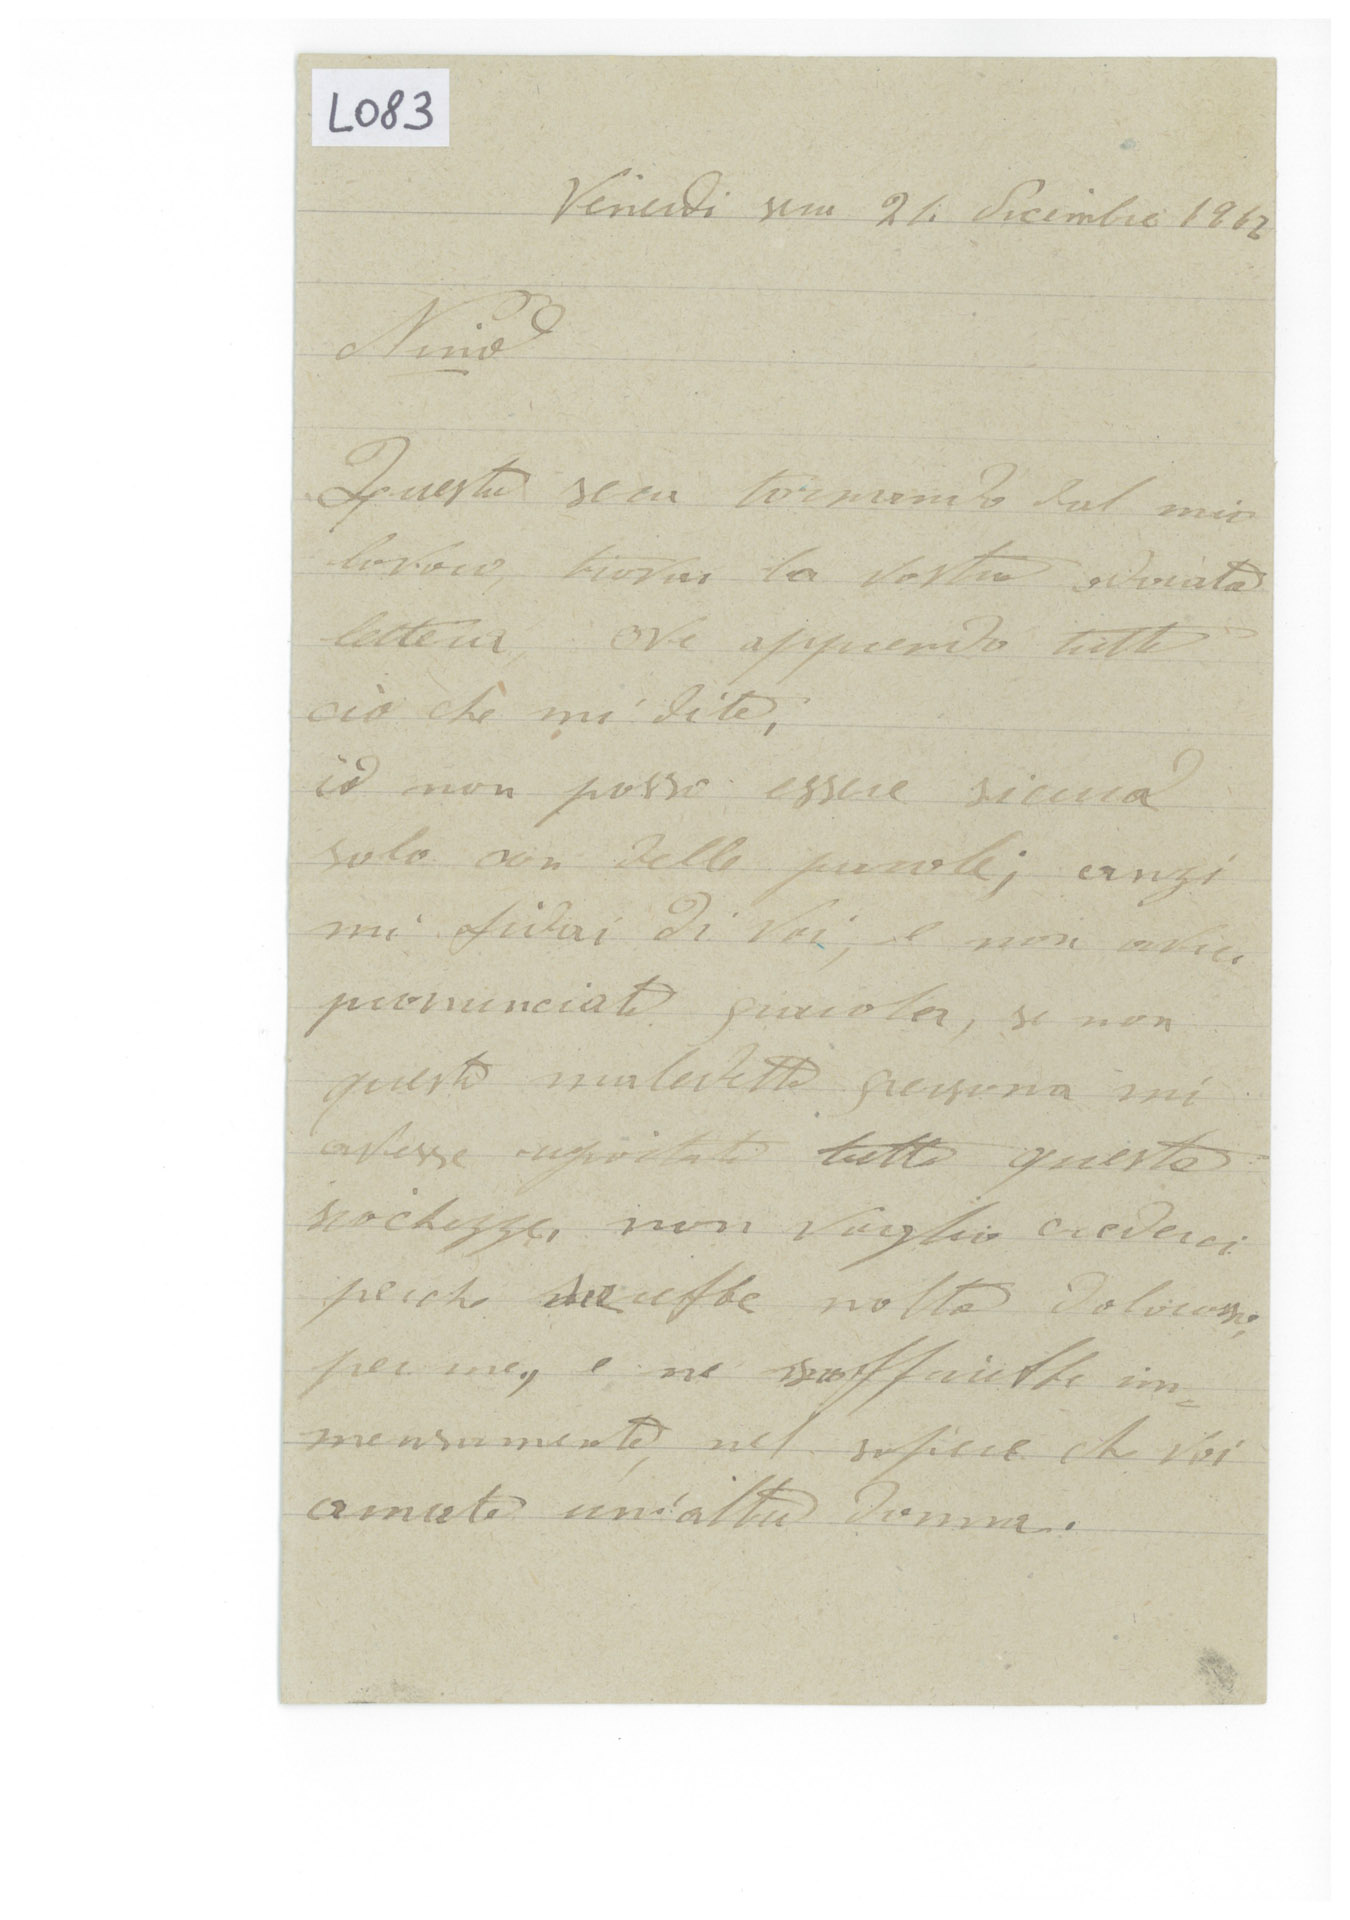 L083
Venerdi sera 21. Dicembre
Nino
Questa sera tornando dal mio
lavoro, trovai la vostra adorata
lettera, ove apprendo tutto
ciò che mi dite,
io non posso essere sicura
solo con delle parole; anzi
mi fidai di voi, e non avrei
pronunciato parola, se non
questa maledetta persona mi
avesse raportato tutte queste
sciochezze, non voglio crederci
perche sarebbe molto
per me, e ne soffrirebbe im=
mensamente, nel sapere che voi
amate un'altra donna.